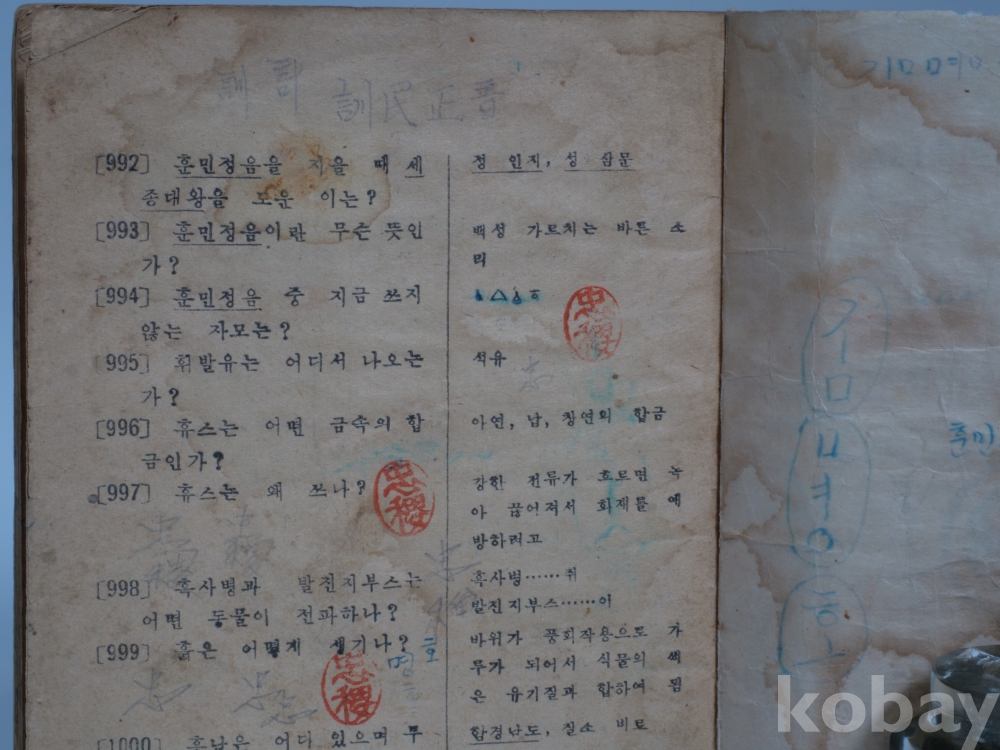 訓民正音
[992] 훈민정음을 지을 때 세
종대왕을 도운 이는?
정 인지, 성 삼문
[993] 훈민정음이란 무슨 뜻인
가?
백성 가르치는 바른 소
리
[994] 훈민정음 중 지금 쓰지
않는 자모는?
[995] 휘발유는 어디서 나오는
가?
석유
[996] 휴스는 어떤 금속의 합
금인가?
아연, 납, 창연의 합금
[997] 휴스는 왜 쓰나?
강한 전류가 흐르면 녹
아 끊어져서 화재를 예
방하려고
[998] 흑사병과 발진지부스는
어떤 동물이 전파하나?
흑사병……쥐
발진지부스……이
[999] 흙은 어떻게 생기나?
바위가 풍화작용으로 가
루가 되어서 식물의 썩
은 유기질과 합하여 됨
[1000] 흥남은 어디 있으며 무
함경남도, 질소 비료
忠稷
忠稷
忠稷
훈민
kobay